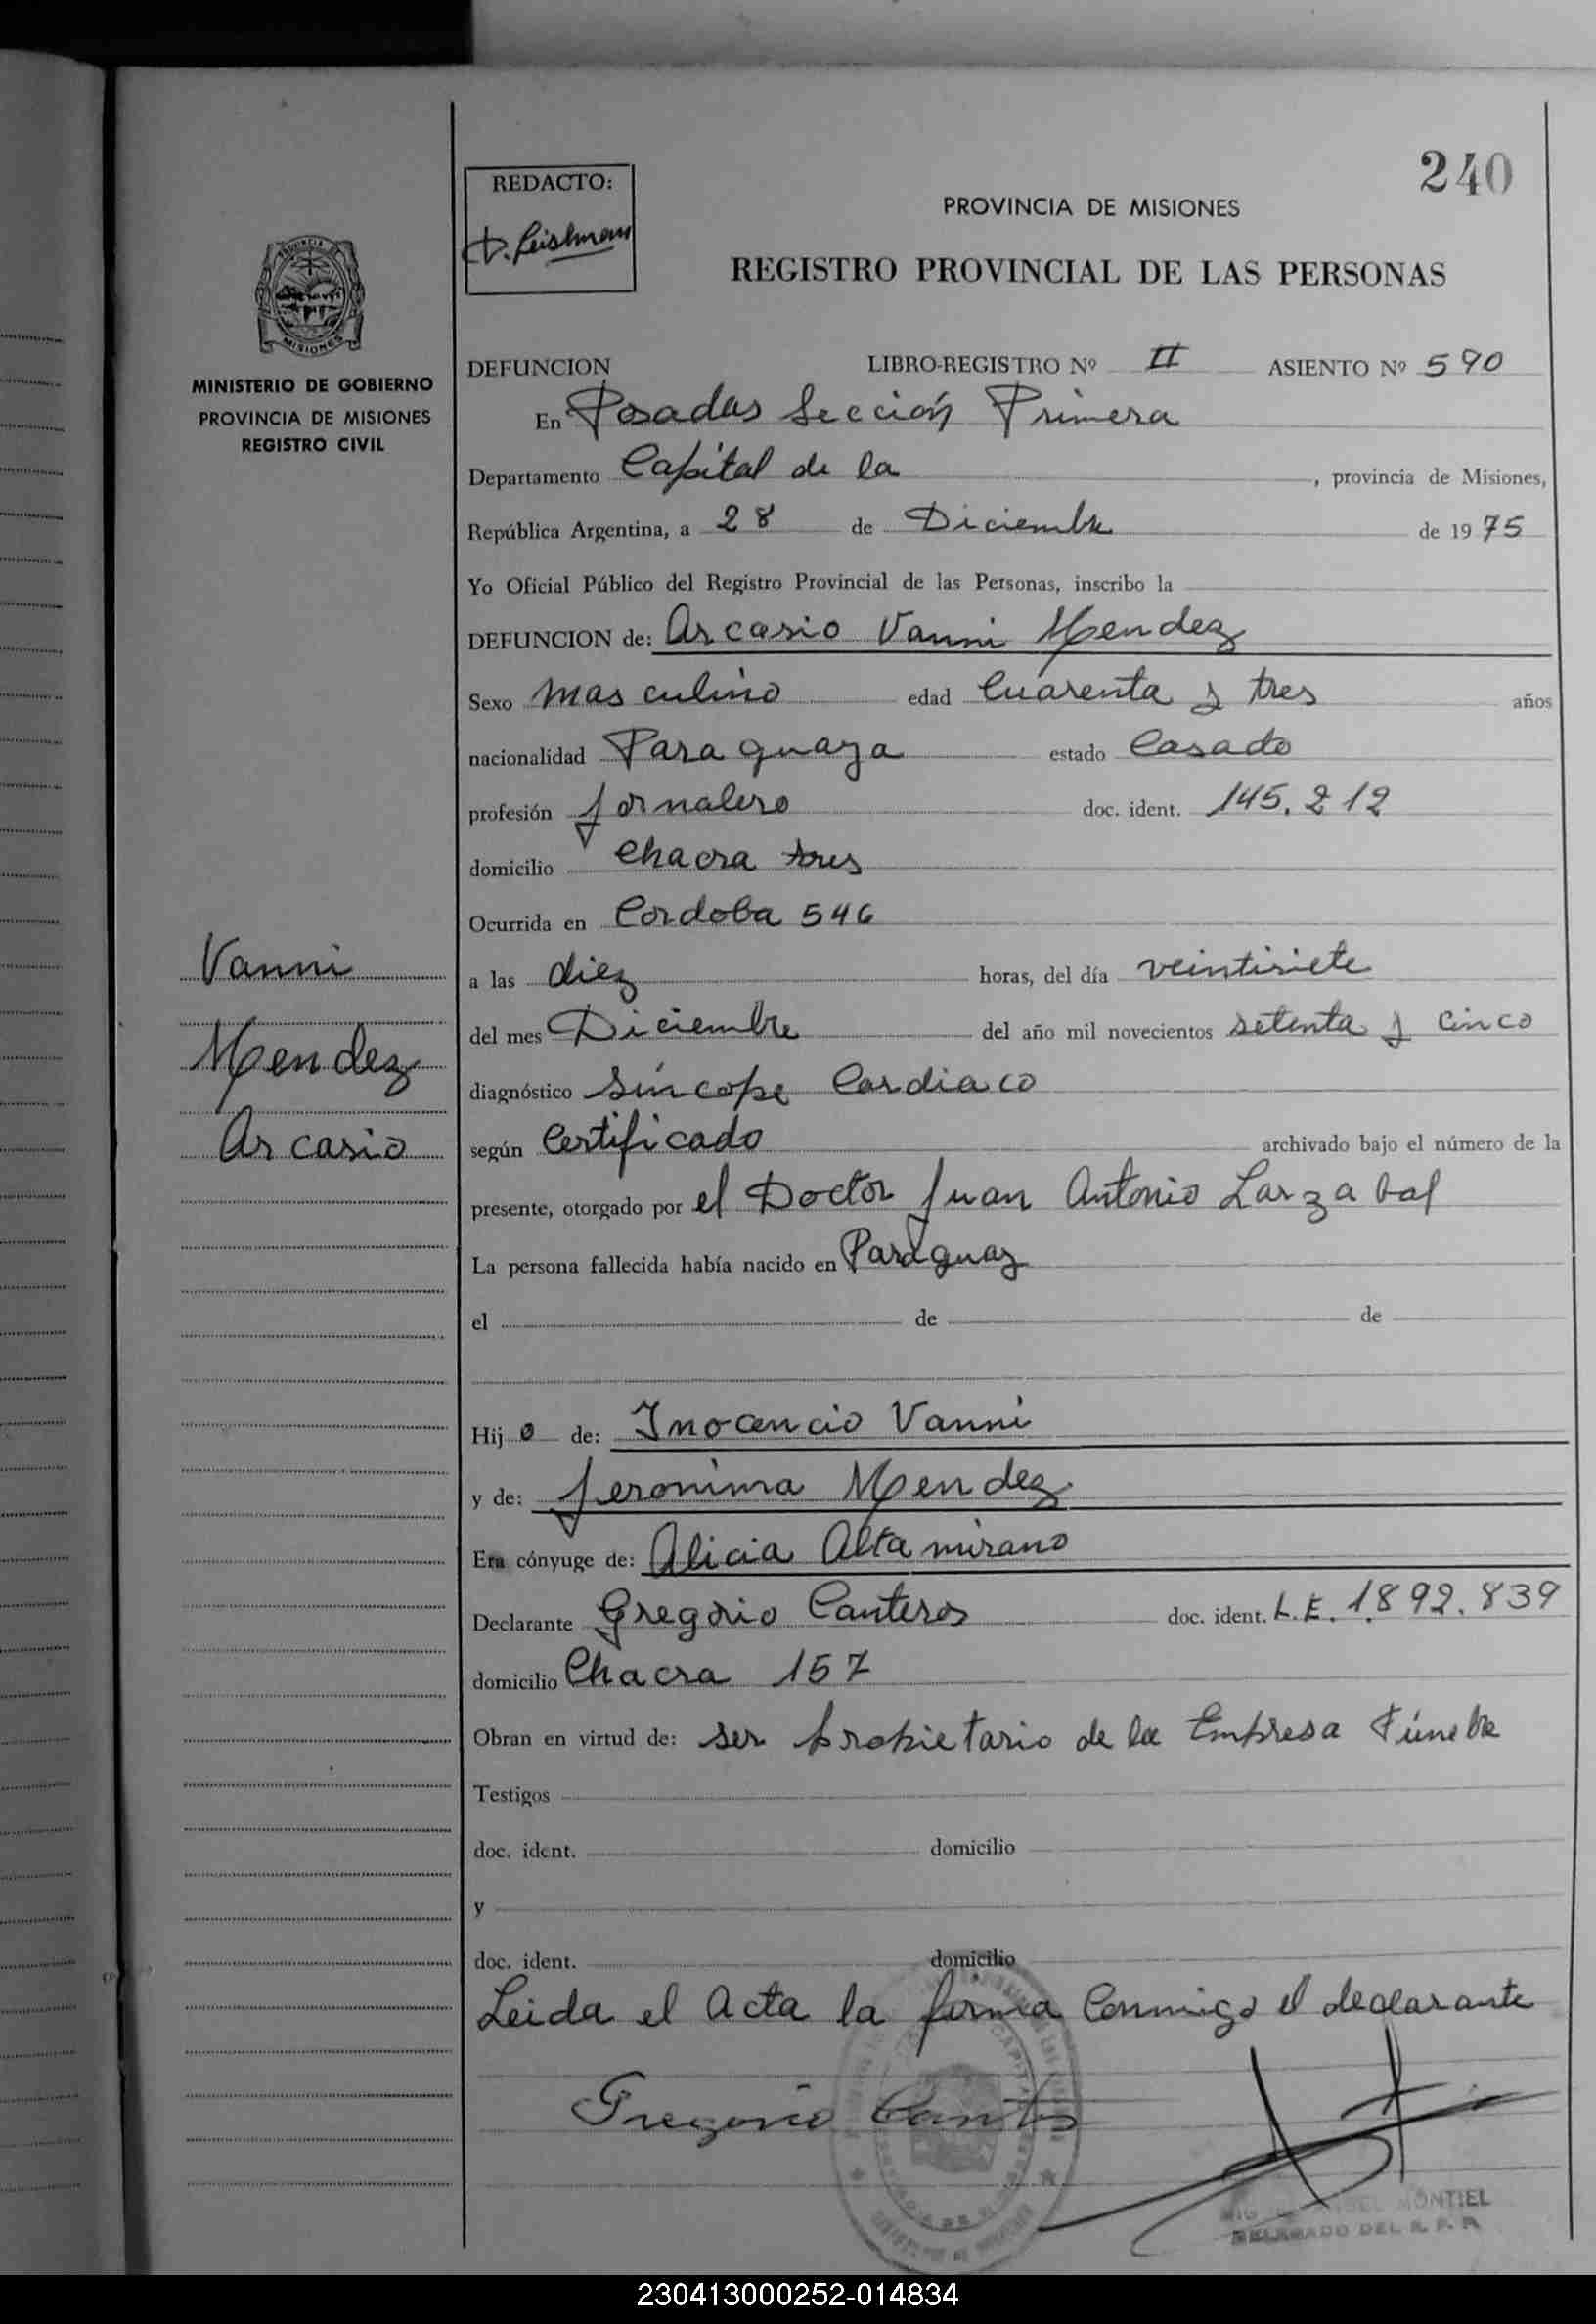 240
REDACTO:
D. Leishman
PROVINCIA DE MISIONES
REGISTRO PROVINCIAL DE LAS PERSONAS
PROVINCIA DE MISIONES
MINISTERIO DE GOBIERNO
PROVINCIA DE MISIONES
REGISTRO CIVIL
DEFUNCION LIBRO-REGISTRO Nº II ASIENTO Nº 590
En Posadas Sección Primera
Departamento Capital de la , provincia de Misiones,
República Argentina, a 28 de Diciembre de 1975
Yo Oficial Público del Registro Provincial de las Personas, inscribo la
DEFUNCION de: Arcasio Vanni Mendez
Sexo masculino edad Cuarenta y tres años
nacionalidad Paraguaya estado Casado
profesión Jornalero doc. ident. 145.212
domicilio Chacra tres
Ocurrida en Cordoba 546
a las diez horas, del día veintisiete
del mes Diciembre del año mil novecientos setenta y cinco
diagnóstico Síncope Cardiaco
según Certificado archivado bajo el número de la
presente, otorgado por el Doctor Juan Antonio Larzabal
La persona fallecida había nacido en Paraguay
el de de
Hijo de: Inocencio Vanni
y de: Jeronima Mendez
Era cónyuge de: Alicia Altamirano
Declarante Gregorio Canteros doc. ident. L.E. 1.892.839
domicilio Chacra 157
Obran en virtud de: ser propietario de la Empresa Fúnebre
Testigos
doc. ident. domicilio
y
doc. ident. domicilio
Leida el Acta la firma Conmigo el declarante
Gregorio
MONTIEL
DELEGADO DEL R. P. P.
Vanni
Mendez
Arcasio
230413000252-014834